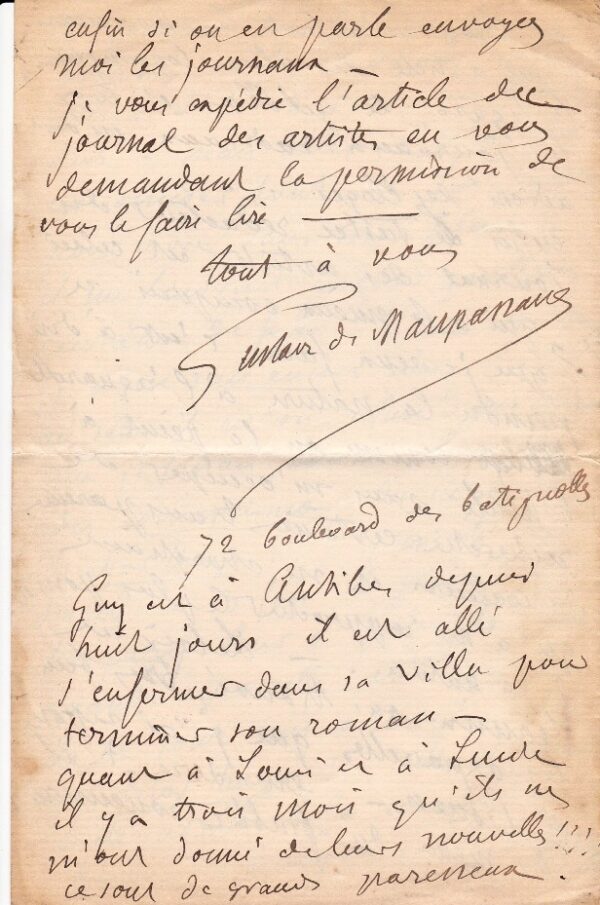 enfin si on en parle envoyez
moi les journaux —
je vous expédie l'article du
journal des artistes en vous
demandant la permission de
vous le faire lire —
tout à vous
Gustave de Maupassant
72 boulevard des batignolles
Guy est à Antibes depuis
huit jours il est allé
s'enfermer dans sa villa pour
terminer son roman —
quant à Louis et à Lucie
il y a trois mois qu'ils ne
m'ont donné de leurs nouvelles!!!
ce sont de grands paresseux.